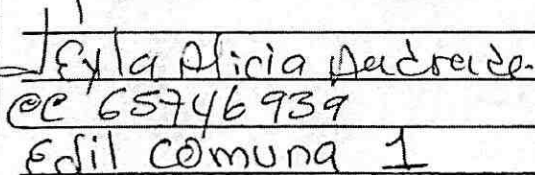 Leyla Alicia Andrade.
CC 65746939
Edil Comuna 1